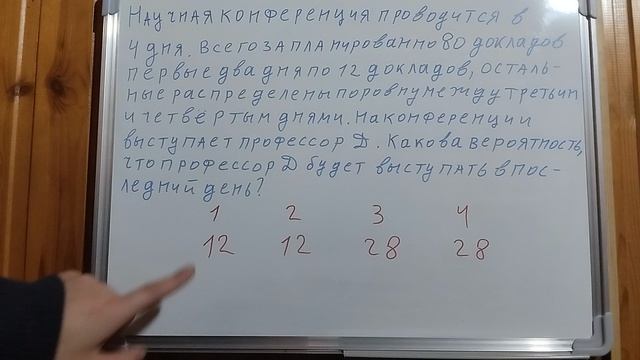 Научная конференция проводится в
4 дня. Всего запланированно 80 докладов
первые два дня по 12 докладов, осталь-
ные распределены поровну между третьим
и четвёртым днями. На конференции
выступает профессор Д. Какова вероятность,
что профессор Д будет выступать в пос-
ледний день?
1 2 3 4
12 12 28 28